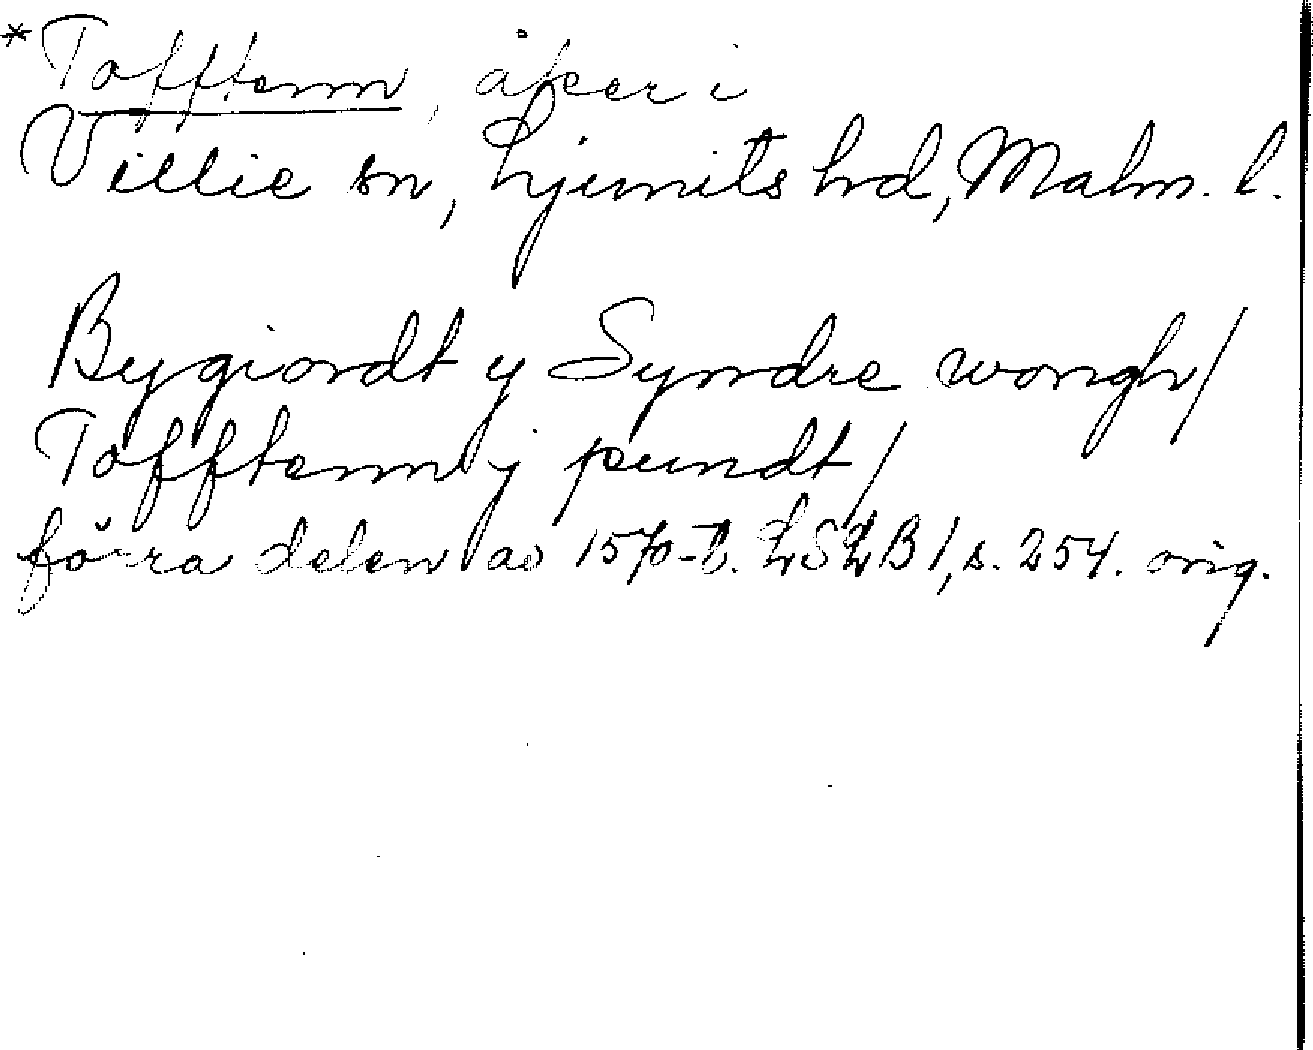 *Tofftenn, åker i
Villie sn, Ljunits hrd, Malm. l.
Bygiordt y Syndre wongh/
Tofftenn j pundt/
förra delen av 1570-t. LSLB 1, s. 254. orig.